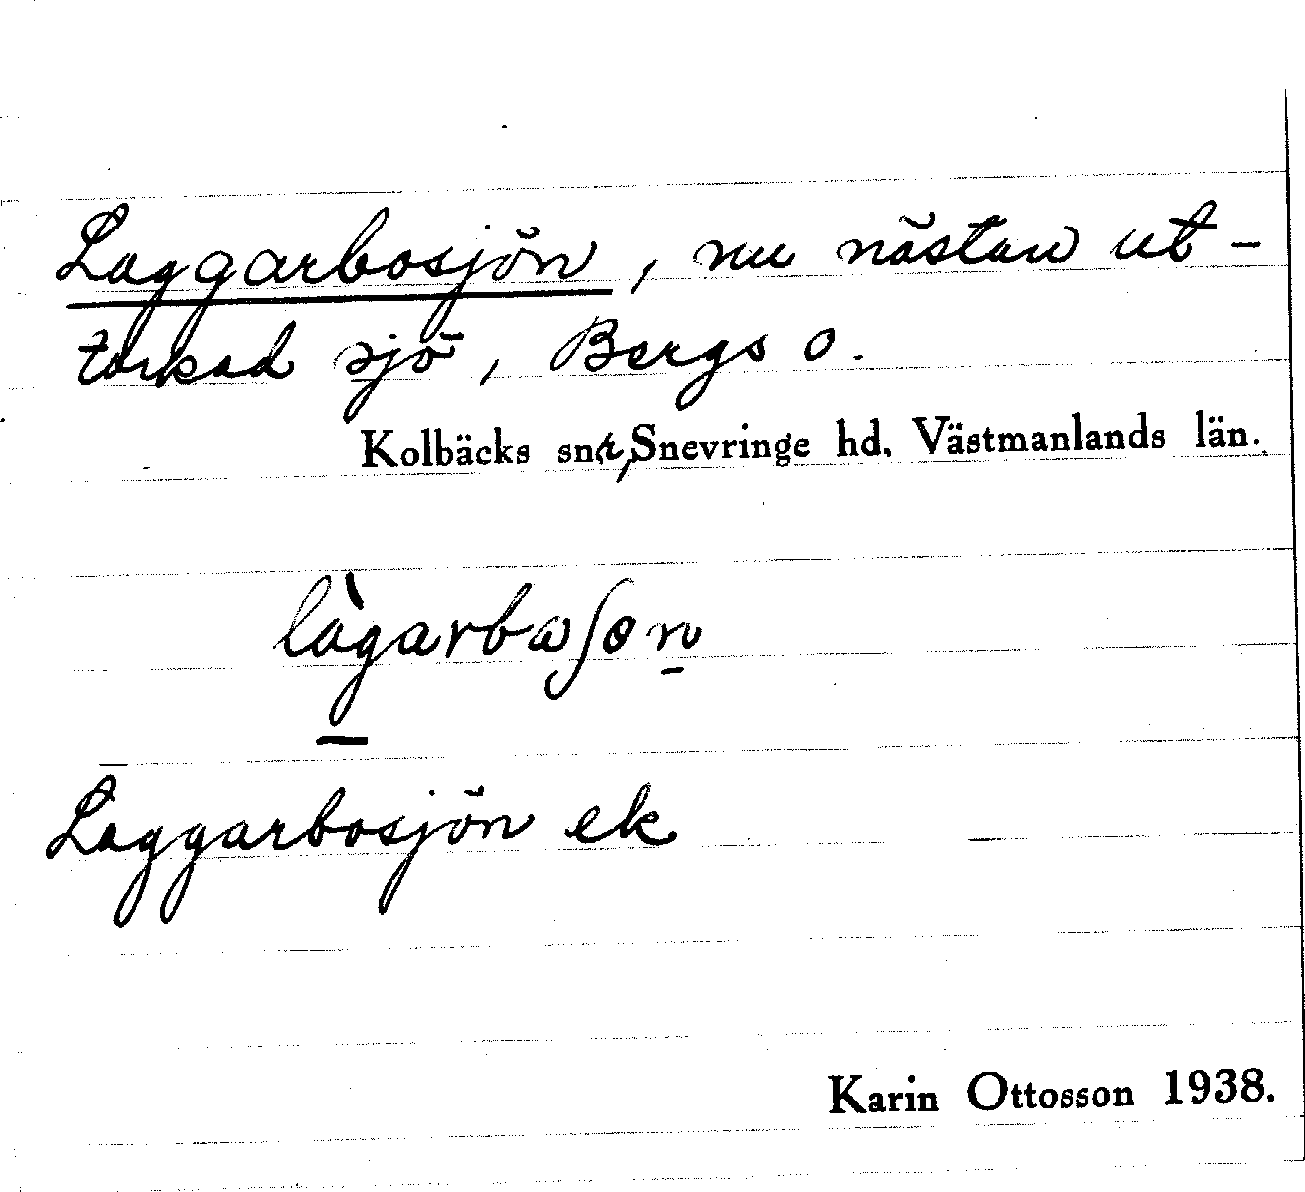 Laggarbosjön, nu nästan ut-
torkad sjö, Bergs o.
Kolbäcks snt, Snevringe hd, Västmanlands län.
làgarbaʃɵn
Laggarbosjön ek
Karin Ottosson 1938.